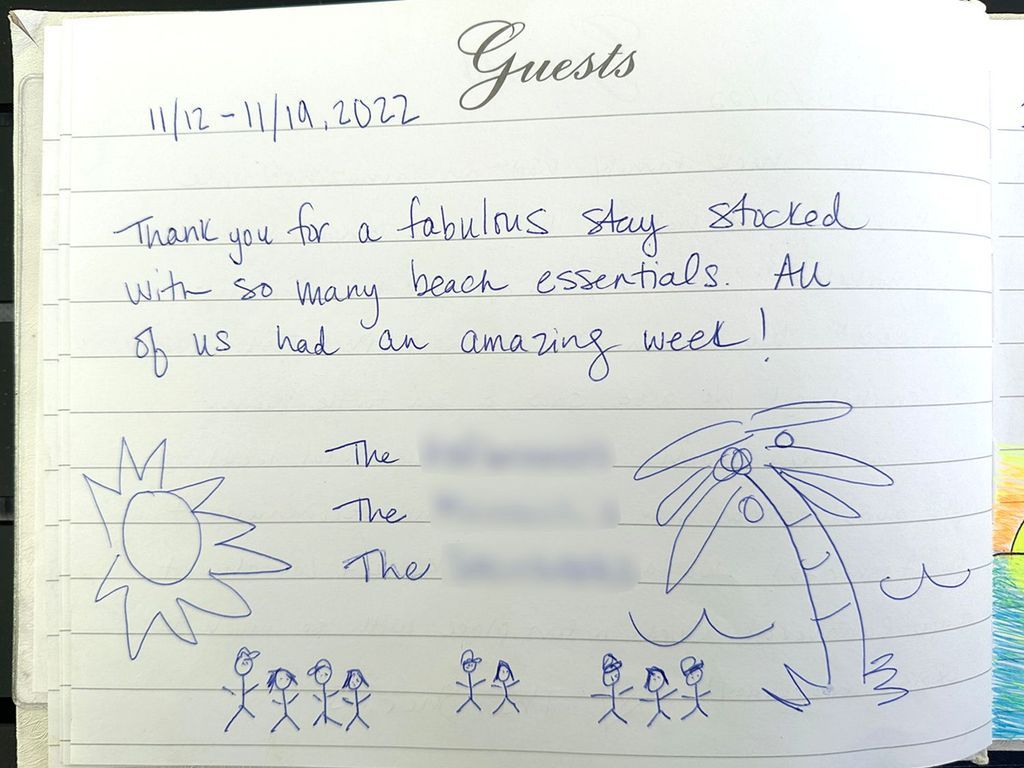 Guests
11/12 - 11/19, 2022
Thank you for a fabulous stay stocked
with so many beach essentials. All
of us had an amazing week!
The
The
The